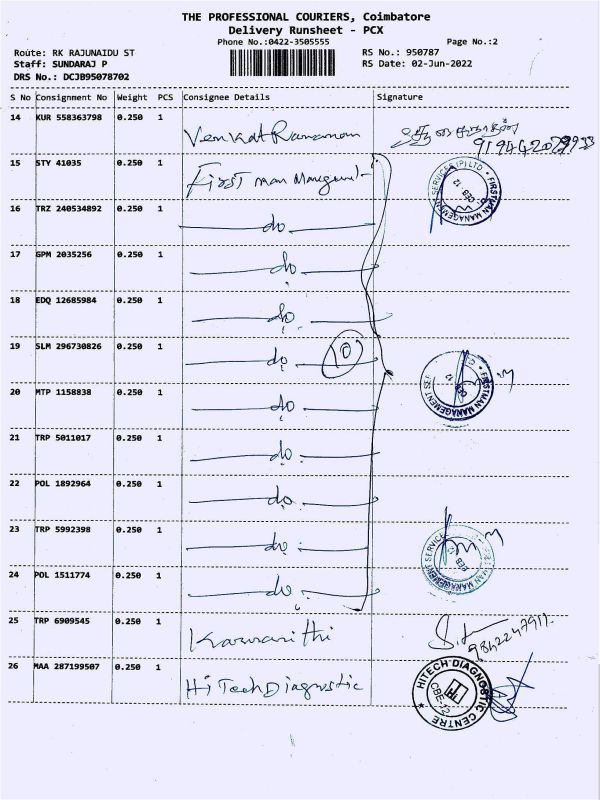 THE PROFESSIONAL COURIERS, Coimbatore
Delivery Runsheet - PCX
Phone No.:0422-3505555
Page No.:2
Route: RK RAJUNAIDU ST
RS No.: 950787
Staff: SUNDARAJ P
RS Date: 02-Jun-2022
DRS No.: DCJB95078702
S No Consignment No Weight PCS Consignee Details Signature
14 KUR 558363798 0.250 1 Venkat Ramanan
15 STY 41035 0.250 1 First man Management
SERVICES (P) LTD. FIRSTMAN MANAGEMENT
16 TRZ 240534892 0.250 1 do
17 GPM 2035256 0.250 1 do
18 EDQ 12685984 0.250 1 do
19 SLM 296730826 0.250 1 do 10
FIRSTMAN MANAGEMENT SER
20 MTP 1158838 0.250 1 do
21 TRP 5011017 0.250 1 do
22 POL 1892964 0.250 1 do
23 TRP 5992398 0.250 1 do
MANAGEMENT SERVICE
24 POL 1511774 0.250 1 do
25 TRP 6909545 0.250 1 9842247911
26 MAA 287199507 0.250 1 Hi Tech Diagnostic
HITECH DIAGNOSTIC CENTRE
CBE-12